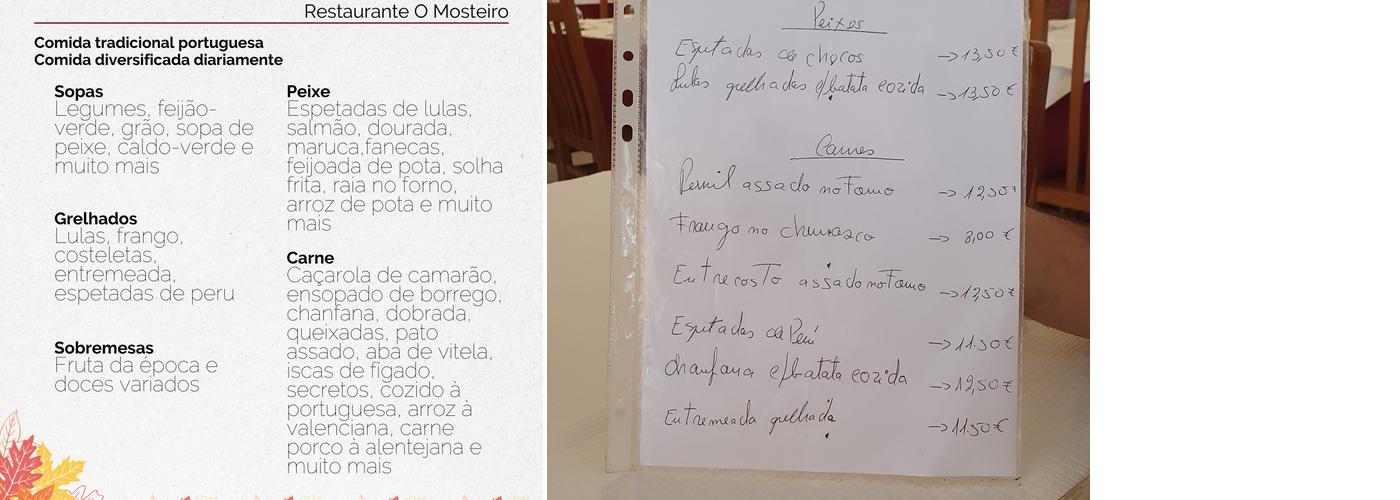 Restaurante O Mosteiro
Comida tradicional portuguesa
Comida diversificada diariamente
Sopas
Legumes, feijão-
verde, grão, sopa de
peixe, caldo-verde e
muito mais
Grelhados
Lulas, frango,
costeletas,
entremeada,
espetadas de peru
Sobremesas
Fruta da época e
doces variados
Peixe
Espetadas de lulas,
salmão, dourada,
maruca,fanecas,
feijoada de pota, solha
frita, raia no forno,
arroz de pota e muito
mais
Carne
Caçarola de camarão,
ensopado de borrego,
chanfana, dobrada,
queixadas, pato
assado, aba de vitela,
iscas de fígado,
secretos, cozido à
portuguesa, arroz à
valenciana, carne
porco à alentejana e
muito mais
Peixes
Espetadas de chocos -> 13,50 €
Lulas grelhadas c/batata cozida -> 13,50 €
Carnes
Pernil assado no Forno -> 12,50
Frango no churrasco -> 8,00 €
Entrecosto assado no Forno -> 12,50 €
Espetadas de Perú -> 11.50 €
Chanfana c/batata cozida -> 12,50 €
Entremeada grelhada -> 11.50 €